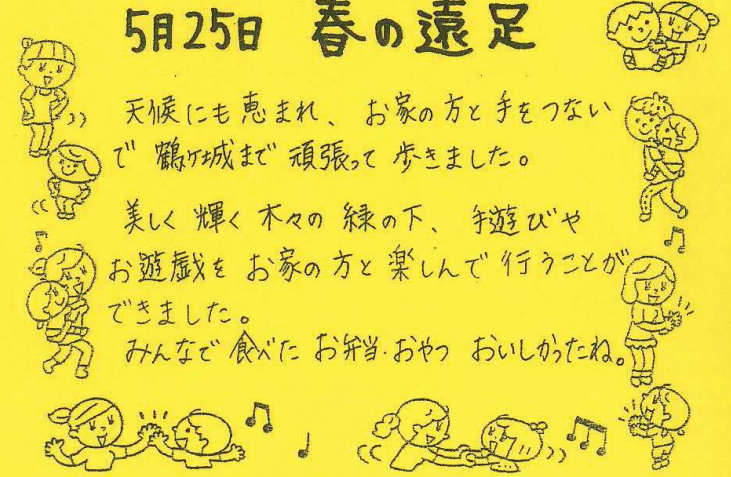 5月25日 春の遠足
天候にも恵まれ、お家の方と手をつない
で鶴ヶ城まで頑張って歩きました。
美しく輝く木々の緑の下、手遊びや
お遊戯をお家の方と楽しんで行うことが
できました。
みんなで食べたお弁当・おやつおいしかったね。